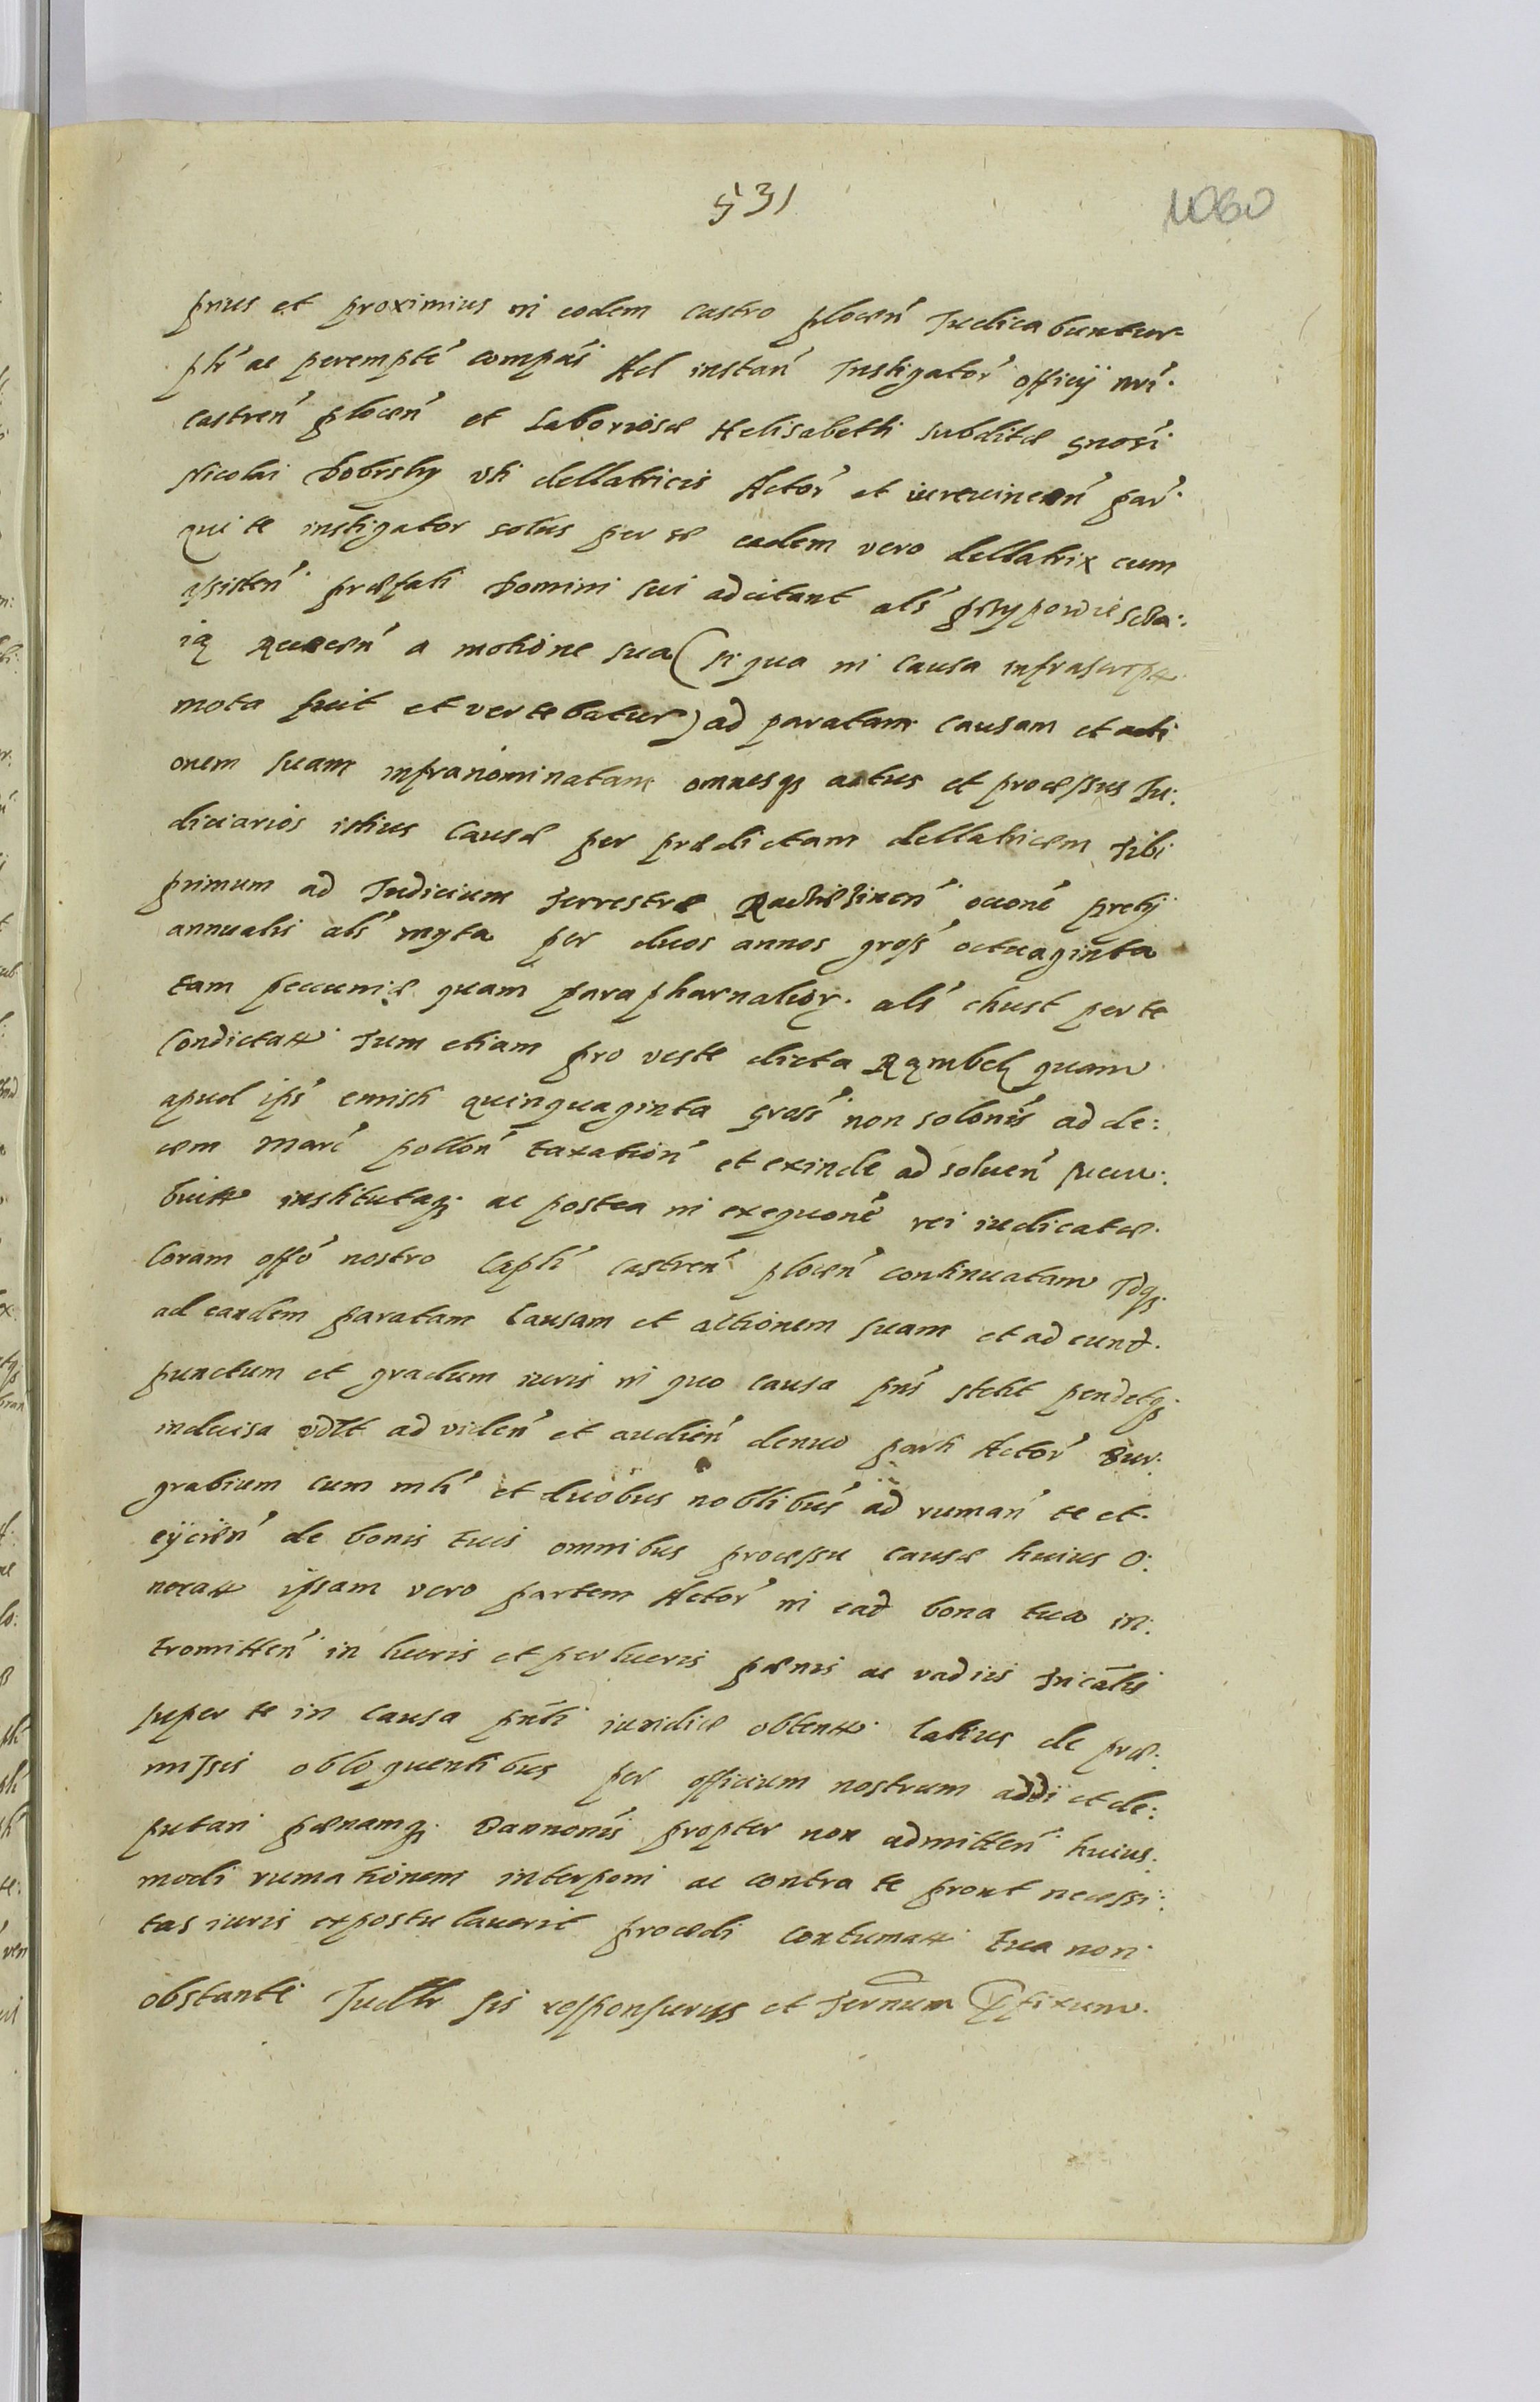 531
1060
prius et proximius in eodem Castro ploceń Iudicabuntur
ptr̃ ac perempte͂ compás Ad instań Instigatoŕ officij nrí.
castreń ploceń et Laboriosæ Helisabethi subditæ gnosi
Nicolai Dobrsky vti dellatricis Actoŕ et iurevinceń par.
qui te instigator solus per se eadem vero dellatrix cum
assisteń præfati Domini sui adcitant als przypowiescza:
ią a motione sua (si qua in Causa infrascript
mota fuit et vertebatur) ad paratam causam et acti
onem suam infranominatam omnesq; actus et processus Iu:
diciarios istius Causæ per prædictam dellatricem tibi
primum ad Iudicium terrestre occone͂ pretij
annualis als myta per duos annos gross octuaginta
tam peccuniæ quam parapharnalior. als chust per te
Condictatt tum etiam pro veste dicta Rąmbek quam
apud ips emisti quinquaginta gross non solonis ad de:
cem marc̃ pollon̄ taxation̄ et exinde ad soluen̄ succu:
buitt institutaq; ac postea in exequone͂ rei iudicatæ.
Coram offo nostro Capli castreń ploceń continuatam Idq;
ad eandem paratam Causam et actionem suam et ad eund.
punctum et gradum iuris in quo causa pns stetit pendetq;
indecisa vdlt ad videń et audień denuo parti Actoŕ Bur:
grabium cum mlí et duobus noblibus ad rumań te et
eijcień de bonis tuis omnibus processu causæ huius O:
neratt ipsam vero partem Actoŕ in ead bona tua in:
tromitteń in lucris et perlucris pænis ac vadiis tricalis
super te in causa pnti iuridice obtentt latius de præ:
missis obloquentibus per officium nostrum addi et de:
putari pænamq; Bannonis propter non admitteń huius:
modi rumationem interponi ac contra te prout necessi:
tas iuris expostulaverit procedi contumatt tua non
obstante Iudltr sis responsurus et Terminum Pfixum.